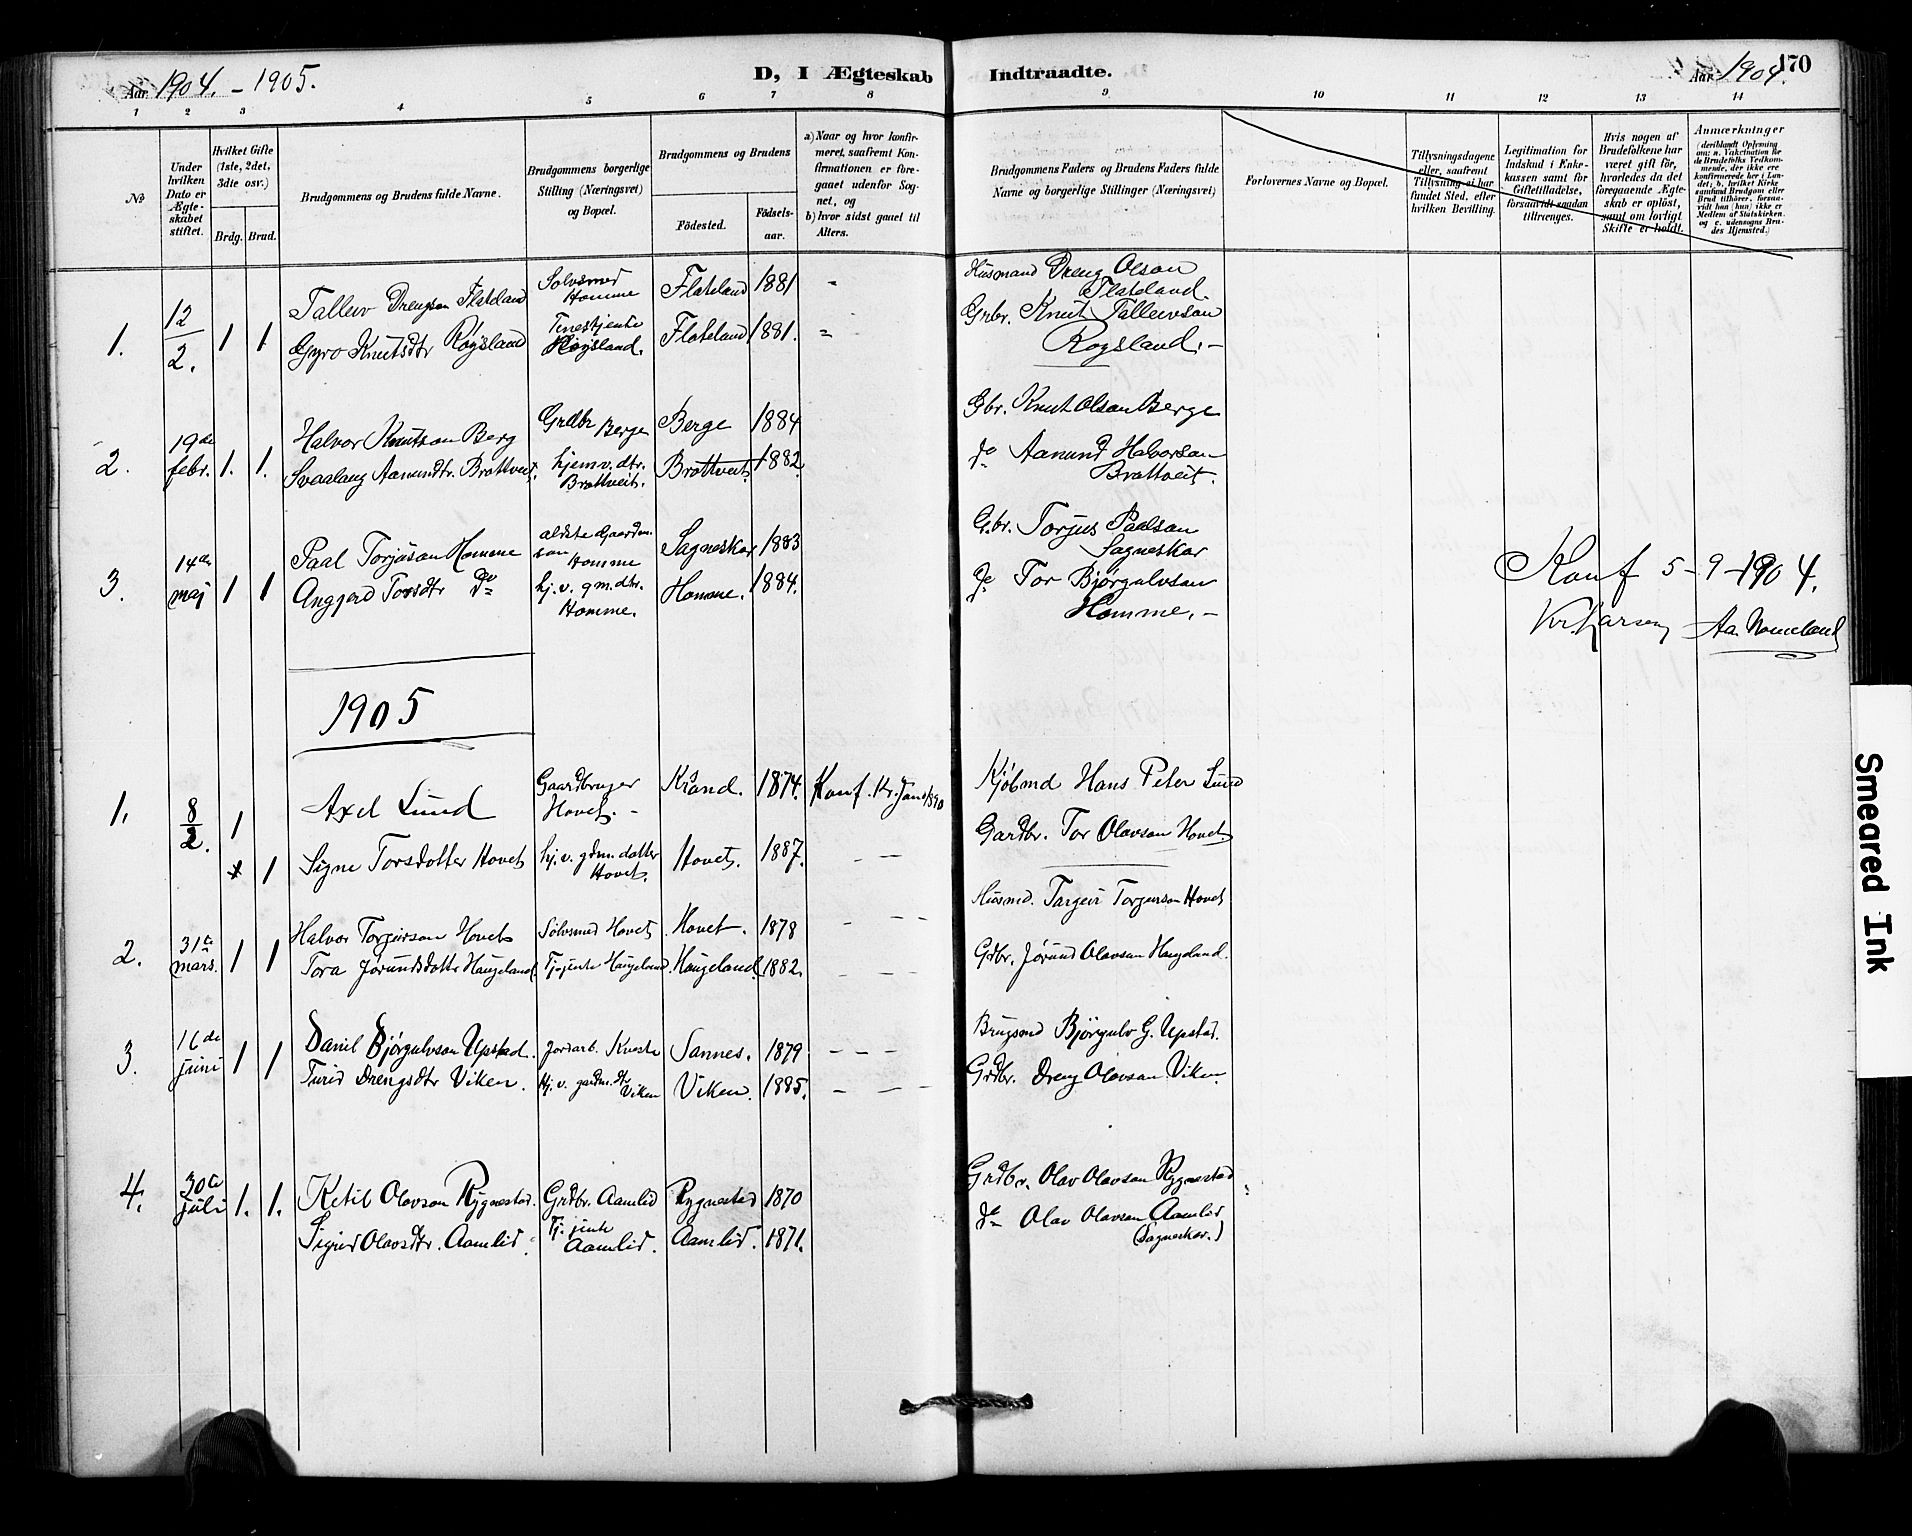 Aar 1904. - 1905.
D, I Ægteskab
Indtraadte.
Aar 1904.
170
1 2 3 4 5 6 7 8 9 10 11 12 13 14
No
Under hvilken Dato er Ægteskabet stiftet.
Hvilket Gifte (1ste, 2det, 3die osv.)
Brdg. Brud.
Brudgommens og Brudens fulde Navne.
Brudgommens borgerlige Stilling (Næringsvei) og Bopæl.
Brudgommens og Brudens
Födested.
Födselsaar.
a) Naar og hvor konfirmeret, saafremt Konfirmationen er foregaaet udenfor Sognet, og
b) hvor sidst gaaet til Alters.
Brudgommens Faders og Brudens Faders fulde Navne og borgerlige Stillinger (Næringsvei)
Forlovernes Navne og Bopæl.
Tillysningsdagene eller, saafremt Tillysning ei har fundet Sted, efter hvilken Bevilling.
Legitimation for Indskud i Enkekassen samt for Giftetilladelse, forsaavidt saadan tiltrænges.
Hvis nogen af Brudefolkene har været gift för, hvorledes da det foregaaende Ægteskab er oplöst, samt om lovligt Skifte er holdt.
Anmærkninger
1. 12/2. 1 1 Tallew Drengson Flateland Sølvsmed Homme Flateland 1881 Husmand Dreng Olson Flateland.
Gyro Knutsdtr Røysland Tenestjente Røysland. Flateland 1881. Grbr. Knut Tallewson Røysland. -
2. 19de febr. 1. 1. Halvor Knutson Berg Grdbr Berge Berge 1884 Gbr. Knut Olson Berge
Svaalaug Aamundtr. Brottveit. hjemv. dtr. Brottveit. Brottveit. 1882 do Aamund Halvorson Brottveit.
3. 14de maj 1 1 Paal Torjuson Homme ældste Gaardm. son Homme Sagneskar 1883 Gbr. Torjus Paalson Sagneskar
Angjerd Torsdtr do hj. v. gm. dtr. Homme. Homme. 1884. do Tor Bjørgulvson Homme. -
Konf 5-9-1904.
Kr. Larsen Aa. Nomeland
1905
1. 8/2. 1 Axel Lund Gaardbruger Hovet. - Krsand. 1874. Konf. Kr.sand 1890 Kjøbmd Hans Peter Lund
1 Signe Torsdotter Hovet hj. v. gdm. dotter Hovet. Hovet. 1887. Gardbr. Tor Olavson Hovet
2. 31te mars. 1 1 Halvor Torgeirson Hovet Sølvsmed Hovet Hovet. 1878 Husmd. Targeir Torgeirson Hovet
Tora Jørundsdotter Haugeland Tj.jente Haugeland. Haugeland. 1882. Grdbr. Jørund Olavson Haugeland.
3. 16de juni 1 1 Daniel Bjørgulvson Upstad. Jordarb. Kveste Sannes. 1879 Brugsmd Bjørgulv G. Upstad.
Turid Drengsdtr Viken. Hj. v. gardm. dtr Viken Viken. 1885. Grdbr. Dreng Olavson Viken.
4. 30te juli 1. 1. Ketil Olavson Rygnestad. Grdbr. Aamlid Rygnestad 1870 Grdbr. Olav Olavson Rygnestad
Sigrid Olavsdtr. Aamlid. Tj. jente Aamlid. Aamlid. 1871. do Olav Olavson Aamlid (Sagneskar.)
Smeared Ink